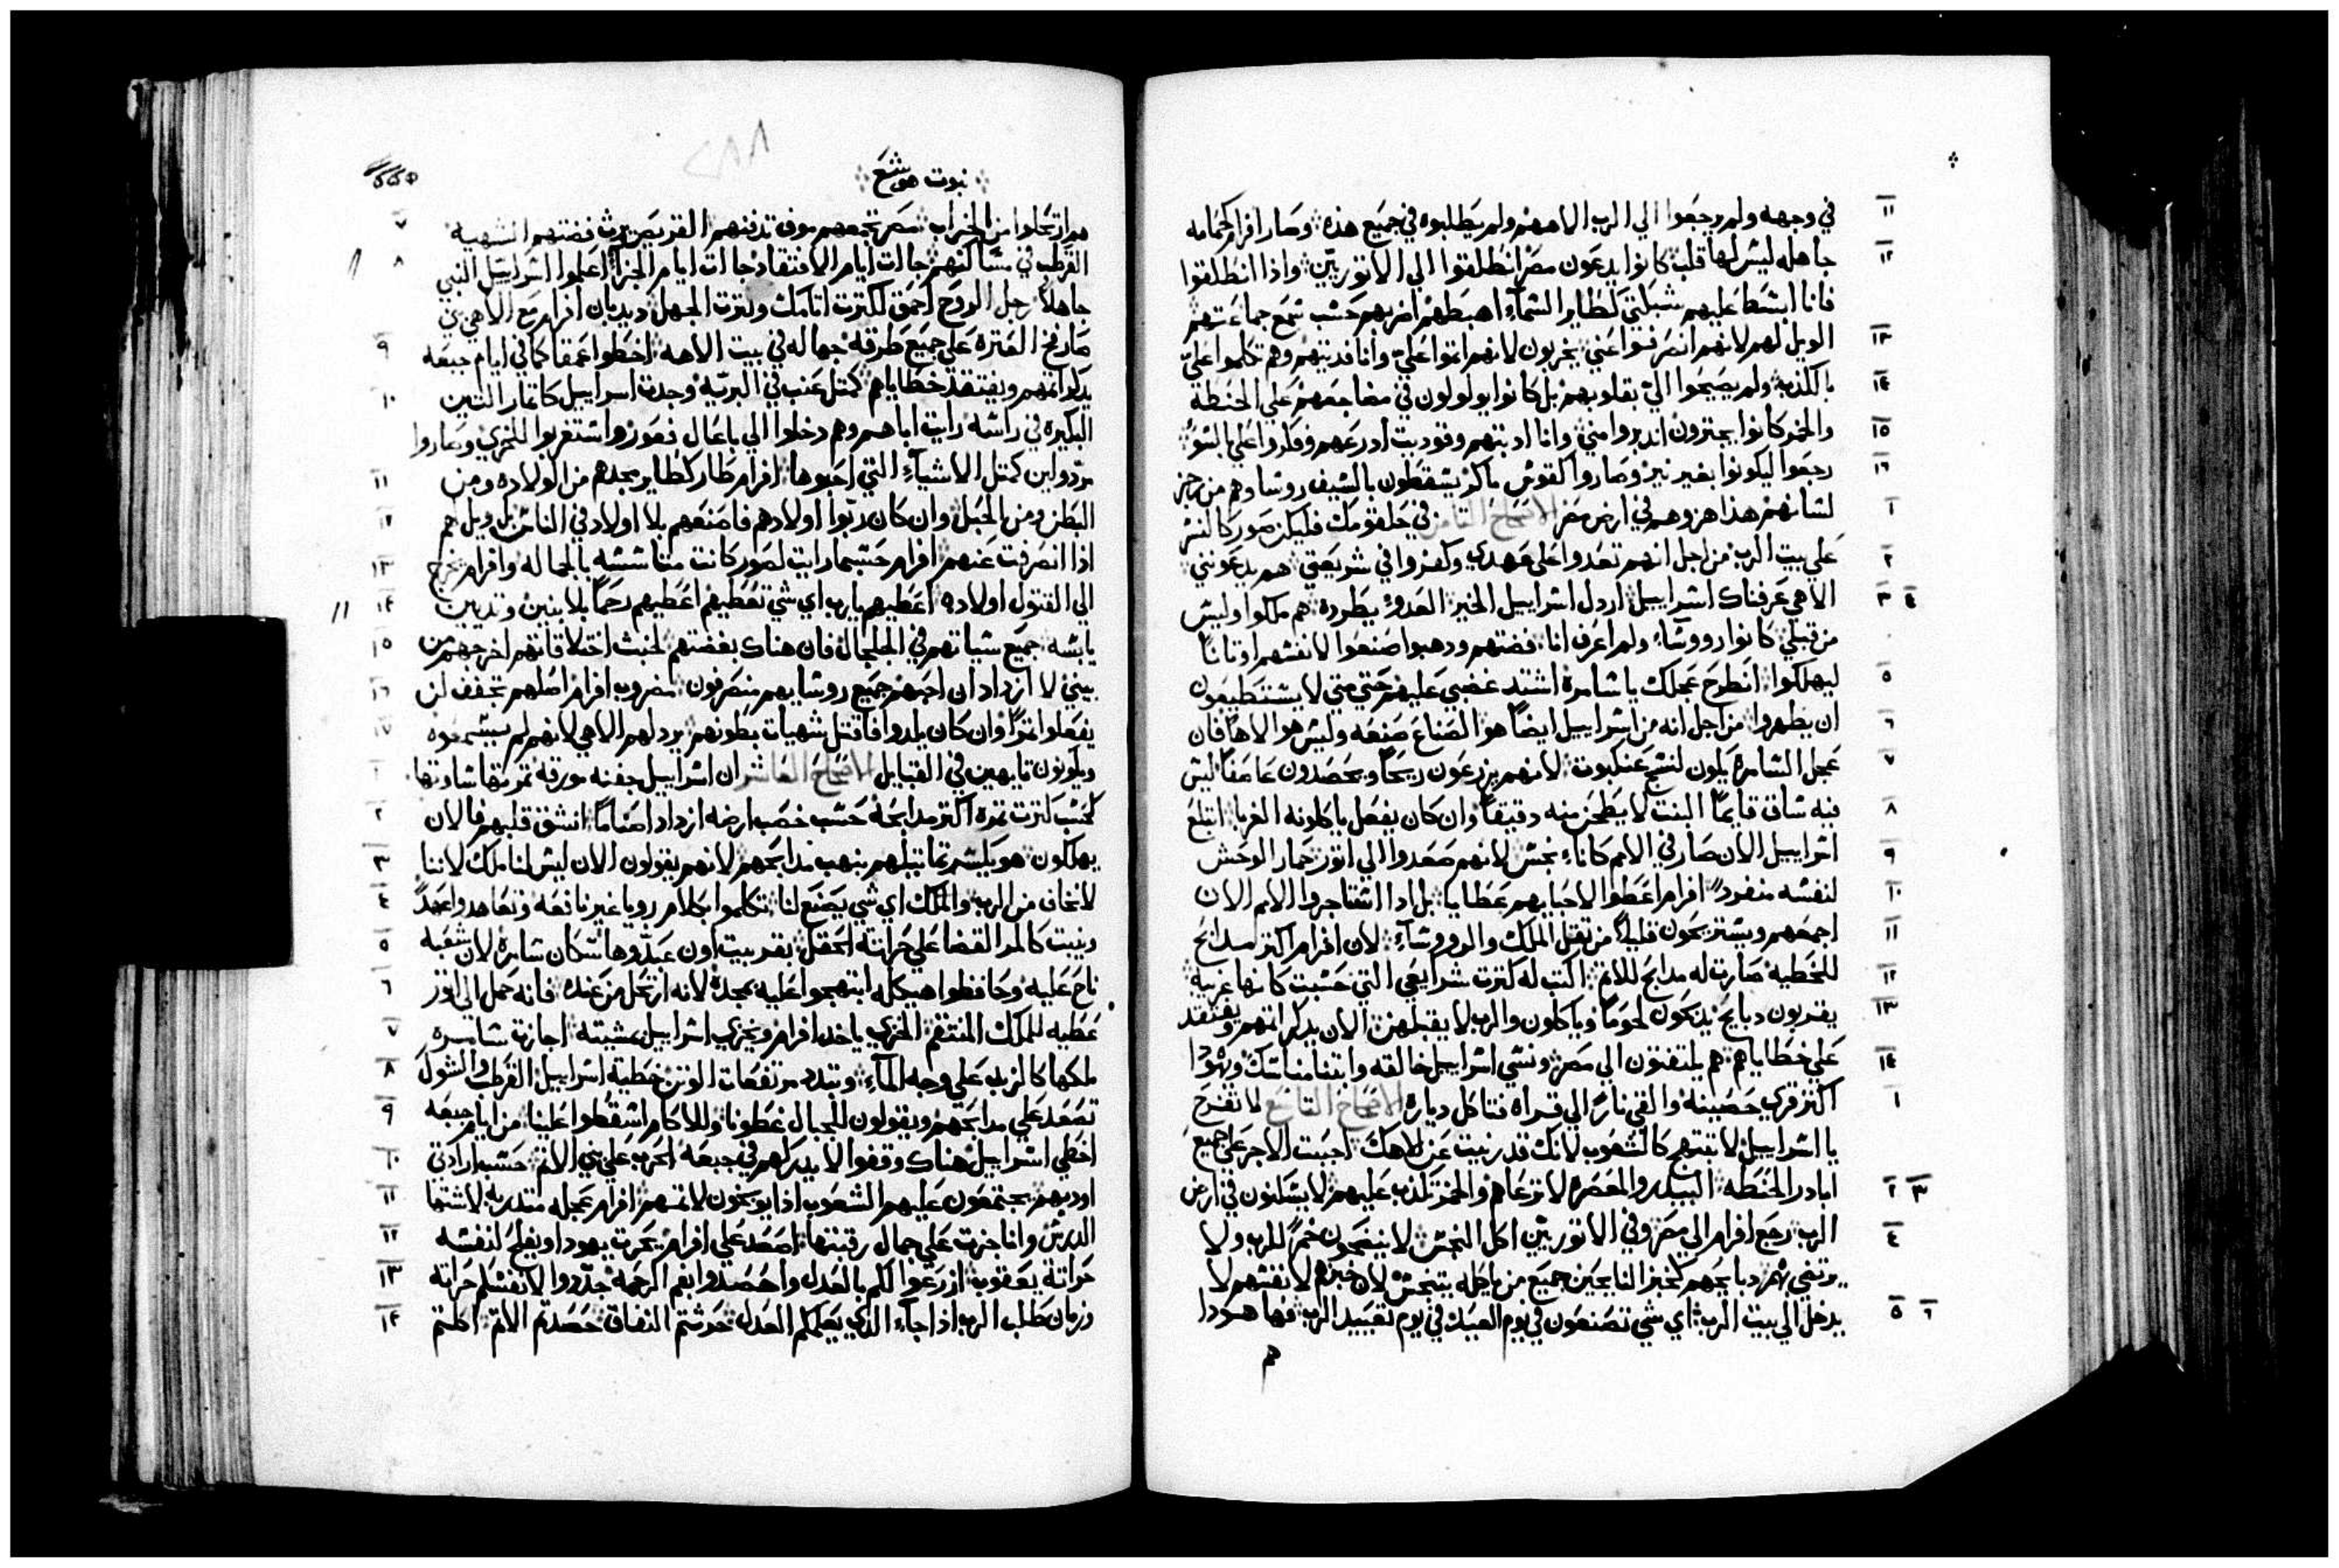 في وجهه ولم يرجعوا الي الرب الاههم ولم يطلبوه في جميع هذه وصار افرام كحمامه ١١
جاهله ليس لها قلب كانوا يدعون مصر انطلقوا الي الاتوريين واذا انطلقوا ١٢
فانا ابسط عليهم شبكتي كطاير السماء اهبطهم اضربهم حسب سمع جماعتهم
الويل لهم لانهم انصرفوا عني يخربون لانهم اتموا علي وانا فديتهم وهم تكلموا علي ١٣
بالكذب ولم يصيحوا الي بقلوبهم بل كانوا يولولون في مضاجعهم علي الحنطه ١٤
والخمر كانوا يجترون اندبروا مني وانا ادبتهم وقويت ادرعهم وفكروا علي السو ١٥
رجعوا ليكونوا بغير نير وصاروا كقوس ماكر يسقطون بالسيف روساوهم من رجز ١٦
لسانهم هذا هزوهم في ارض مصر الاصحاح الثامن في حلقومك فليكن صور كالنسر ١
علي بيت الرب من اجل انهم تعدوا علي عهدي وكفروا في شريعتي هم يدعونني ٢
الاهي عرفناك اسراييل اردل اسراييل الخير العدو يطرده هم ملكوا وليس ٣ ٤
من قبلي كانوا رووسا ولم اعرف انا فضتهم ودهبوا صنعوا لانفسهم اوتانا
ليهلكوا انطرح عجلك يا شامره اشتد غضبي عليهم حتي متي لا يستطيعون ٥
ان يطهروا من اجل انه من اسراييل ايضا هو الصناع صنعه وليس هو الاها فان ٦
عجل السامره يكون لنسج عنكبوت لانهم يزرعون ريحا ويحصدون عاصفا ليس ٧
فيه ساق قايما البنت لا يطحن منه دقيقا وان كان يفعل ياكلونه الغربا ابتلع ٨
اسراييل الان صار في الامم كاناء نجس لانهم صعدوا الي اتور حمار الوحش ٩
لنفسه منفرد افرام اعطوا لاحبايهم عطايا بل ادا استاجروا الامم الان ١٠
اجمعهم ويستريحون قليلا من تقل الملك والرووساء لان افرام اكتر مدابح ١١
للخطيه صارت له مدابح للاتم اكتب له كترت شرايعي التي حسبت كانها غريبه ١٢
يقربون دبايح يدبحون لحوما وياكلون والرب لا يقبلهن الان يدكر اتمهم ويفتقد ١٣
علي خطاياهم هم يلتفتون الي مصر ونسي اسراييل خالقه وابتنا مناسك ويهودا ١٤
اكتر قري حصينه والقي نارا الي قراه فتاكل دياره الاصحاح التاسع لا تفرح ١
يا اسراييل لا تبتهج كالشعوب لانك قد زنيت عن الاهك احببت الاجر علي جميع
ابادر الحنطه البيدر والمعصره لا ترعاهم والخمر تكدب عليهم لا يسكنون في ارض ٢ ٣
الرب رجع افرام الي مصر وفي الاتوريين اكل النجس لا ينضحون خمرا للرب ولا ٤
يرتضي بهم دبايحهم كخبز النايحين جميع من ياكله يتنجس لان خبزهم لانفسهم لا
يدخل الي بيت الرب اي شي تصنعون في يوم العيد في يوم تعييد الرب فها هودا ٥ ٦
هم
نبوت هوشع
هم ارتحلوا من الخراب مصر تجمعهم موف تدفنهم القريص يرث فضتهم الشهيه ٧
القرطب في مساكنهم جاات ايام الافتقاد جاات ايام الجزا اعلموا اسراييل النبي ٨
جاهلا رجل الروح احمق لكترت اتامك وكترت الجهل ديدبان افرام مع الاهي نبي
صار فخ العتره علي جميع طرقه جهاله في بيت الاهه اخطوا عمقا كما في ايام جبعه ٩
يدكر اتمهم ويفتقد خطاياهم كمتل عنب في البريه وجدت اسراييل كاتمار التين ١٠
البكيره في راسه رايت اباهم وهم دخلوا الي باعال فعور واستغربوا للخزي وصاروا
مردولين كمتل الاشياء التي احبوها افرام طار كطاير مجدهم من الولاده ومن ١١
البطن ومن الحبل وان كان ربوا اولادهم فاصنعهم بلا اولاد في الناس بل ويل لهم ١٢
ادا انصرفت عنهم افرام حسبما رايت لصور كانت متاسسه بالجماله وافرام يخرج ١٣
الي القتول اولاده اعطيهم يارب اي شي تعطيهم اعطيهم رحما بلا بنين وتديين ١٤
يابسه جميع سياتهم في الجلجال فان هناك بغضتهم لخبث اختلاقاتهم اخرجهم من ١٥
بيتي لا ازداد ان احبهم جميع روسايهم منصرفون مضروب افرام اصلهم تجفف لن ١٦
يفعلوا تمرا وان كان يلدوا فاقتل شهيات بطونهم يردلهم الاهي لانهم لم يسمعوه ١٧
ويكونون تايهين في القبايل الاصحاح العاشر ان اسراييل جفنه مورقه تمرتها ساوتها ١
كحسب كترت تمره اكتر مدابحه حسب خصب ارضه ازداد اصناما انشق قلبهم فالان ٢
يهلكون هو يكسر تماتيلهم ينهب مدابحهم لانهم يقولون الان ليس لنا ملك لاننا ٣
لا نخاف من الرب والملك اي شي يصنع لنا تكلموا بكلام رويا غير نافعه وتعاهدوا عهدا ٤
وينبت كالمر القضا علي حراته الحقل بقر بيت اون عبدوها سكان شامره لان شعبه ٥
ناح عليه وحافظوا هيكله ابتهجوا عليه بمجده لانه ارتحل من عنده فانه حمل الي اتور ٦
عطيه للملك المنتقم الخزي ياخد افرام ويخزي اسراييل بمشيته اجازت شامره ٧
ملكها كالزبد علي وجه الماء وتبدد مرتفعات الوتن خطية اسراييل القرطب والشوك ٨
تصعد علي مدابحهم ويقولون للجبال غطونا وللاكام اسقطوا علينا من ايام جبعه ٩
اخطي اسراييل هناك وقفوا لا يدركهم في جبعه الحرب علي بني الاتم حسب ارادتي ١٠
اودبهم يجتمعون عليهم الشعوب ادا يوبخون لاتمهم افرام عجله متدربه لاشتها ١١
الدرس وانا جزت علي جمال رقبتها اصعد علي افرام يحرت يهودا ويفلح لنفسه ١٢
حراتة يعقوب ازرعوا لكم بالعدل واحصدوا بفم الرحمه جددوا لانفسكم حراته ١٣
وزمان طلب الرب ادا جاء الدي يعلمكم العدل حرستم النفاق حصدتم الاتم اكلتم ١٤